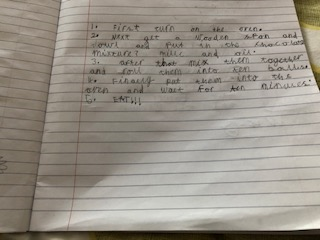 1. First turn on the oven.
2. Next get a wooden spon and
bowl and put in the chocolow
mixture? milk and oil.
3. after that mix them together
and roll them into ten balls.
4. Finally put them into the
oven and wait for ten minuits.
5. EAT!!!